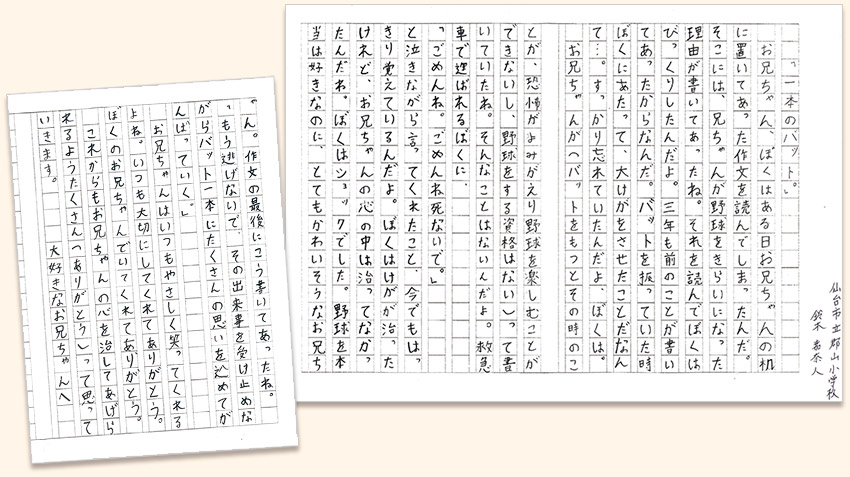 仙台市立郡山小学校
鈴木
「一本のバット。」
お兄ちゃん、ぼくはある日お兄ちゃんの机
に置いてあった作文を読んでしまったんだ。
そこには、兄ちゃんが野球をきらいになった
理由が書いてあったね。それを読んでぼくは
びっくりしたんだよ。三年も前のことが書い
てあったからなんだ。バットを振っていた時
ぼくにあたって、大けがをさせたことだなん
て…。すっかり忘れていたんだよ、ぼくは。
お兄ちゃんが〈バットをもつとその時のこ
とが、恐怖がよみがえり野球を楽しむことが
できないし、野球をする資格はない〉って書
いていたね。そんなことはないんだよ。救急
車で運ばれるぼくに、
「ごめんね。ごめんね死ないで。」
と泣きながら言ってくれたこと、今でもはっ
きり覚えているんだよ。ぼくはけがが治った
けれど、お兄ちゃんの心の中は治ってなかっ
たんだね。ぼくはショックでした。野球を本
当は好きなのに、とてもかわいそうなお兄ち
ゃん。作文の最後にこう書いてあったね。
「もう逃げないで、その出来事を受け止めな
がらバット一本にたくさんの思いを込めてが
んばっていく。」
お兄ちゃんはいつもやさしく笑ってくれる
よね。いつも大切にしてくれてありがとう。
ぼくのお兄ちゃんでいてくれてありがとう。
これからもお兄ちゃんの心を治してあげら
れるようたくさん〈ありがとう〉って思って
いきます。
大好きなお兄ちゃんへ